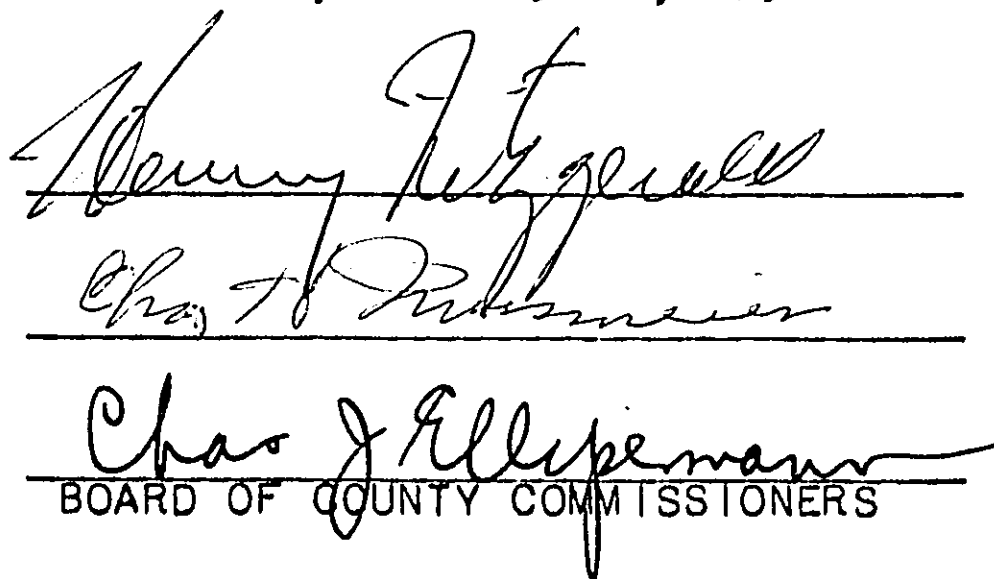 Henry Fitzgerald
Chas H
Chas J Ellspermann
BOARD OF COUNTY COMMISSIONERS